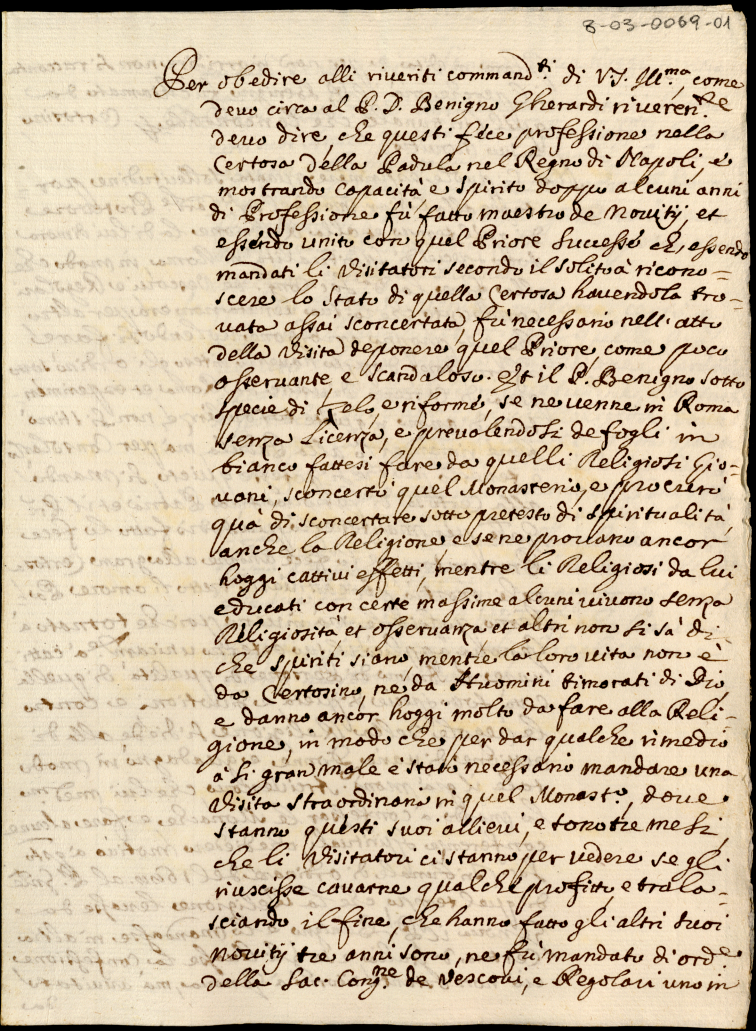 8-03-0069-01
Per obedire alli riveriti command.ti di V.S. Ill.ma, come
devo circa al P. D. Benigno Gherardi riveren.te
devo dire, che questi fece professione nella
Certosa della Padula nel Regno di Napoli, e
mostrando capacità, e spirito doppo alcuni anni
di Professione fù fatto maestro de Novitij, et
essendo unito con quel Priore successe ch, essendo
mandati li Visitatori secondo il solito à ricono=
scere lo stato di quella Certosa havendola tro=
vata assai sconcertata, fù necessario nell'atto
della Visita deponere quel Priore, come poco
osservante e scandaloso. Et il P. Benigno sotto
specie di Zelo, e riforme, se ne venne in Roma
senza Licenza, e prevalendosi de fogli in
bianco fattesi fare da quelli Religiosi Gio=
vani, sconcertò quel Monasterio, e procurò
quà di sconcertare sotto pretesto di spiritualità,
anche la Religione e se ne provano ancor
hoggi cattivi effetti, mentre li Religiosi da lui
educati con certe massime alcuni vivono senza
Religiosità et osservanza et altri non si sà di
che spiriti siano, mentre la loro vita non è
da Certosino, ne da Huomini timorati di Dio,
e danno ancor hoggi molto da fare alla Reli=
gione, in modo che per dar qualche rimedio
à si gran male è stato necessario mandare una
Visita straordinaria in quel Monast.o, dove
stanno questi suoi allievi, e sono tre mesi,
che li Visitatori ci stanno per vedere se gli
riuscisse cavarne qualche profitto, e trala=
sciando il fine, che hanno fatto gli altri suoi
Novitij tre anni sono, ne fù mandato di ord.e
della Sac. Cong.ne de Vescovi, e Regolari uno in